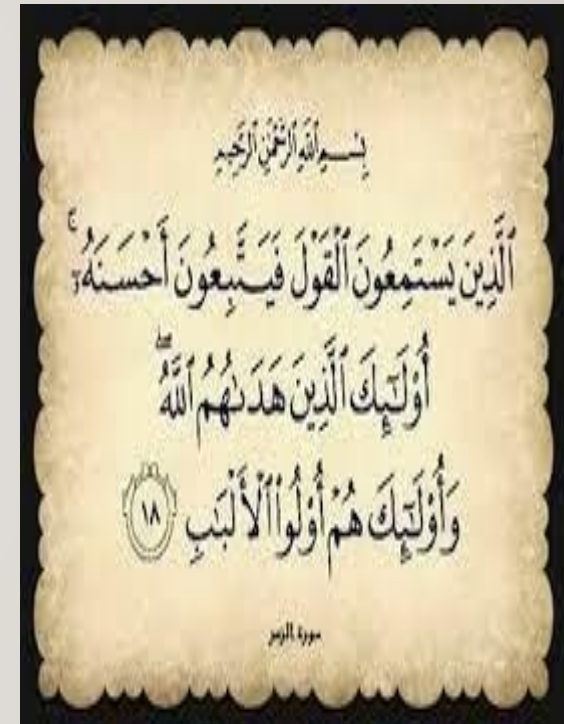 بِسْمِ ٱللَّهِ ٱلرَّحْمَٰنِ ٱلرَّحِيمِ
ٱلَّذِينَ يَسْتَمِعُونَ ٱلْقَوْلَ فَيَتَّبِعُونَ أَحْسَنَهُۥٓ ۚ
أُو۟لَـٰٓئِكَ ٱلَّذِينَ هَدَىٰهُمُ ٱللَّهُ ۖ
وَأُو۟لَـٰٓئِكَ هُمْ أُو۟لُوا۟ ٱلْأَلْبَـٰبِ ١٨
سورة الزمر